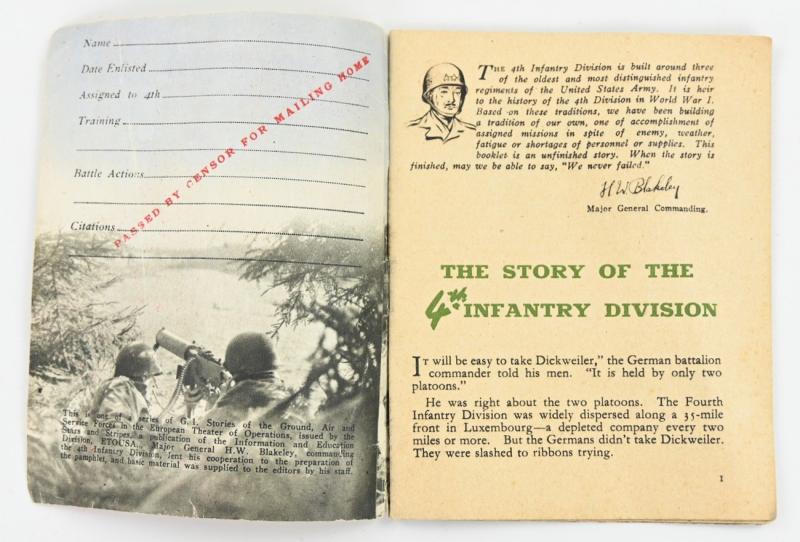 Name
Date Enlisted
Assigned to 4th
Training
Battle Actions
Citations
PASSED BY CENSOR FOR MAILING HOME
This is one of a series of G.I. Stories of the Ground, Air and
Service Forces in the European Theater of Operations, issued by the
Stars and Stripes, a publication of the Information and Education
Division, ETOUSA. Major General H.W. Blakeley, commanding
the 4th Infantry Division, lent his cooperation to the preparation of
the pamphlet, and basic material was supplied to the editors by his staff.
THE 4th Infantry Division is built around three
of the oldest and most distinguished infantry
regiments of the United States Army. It is heir
to the history of the 4th Division in World War I.
Based on these traditions, we have been building
a tradition of our own, one of accomplishment of
assigned missions in spite of enemy, weather,
fatigue or shortages of personnel or supplies. This
booklet is an unfinished story. When the story is
finished, may we be able to say, "We never failed."
H.W. Blakeley
Major General Commanding.
THE STORY OF THE
4th INFANTRY DIVISION
IT will be easy to take Dickweiler," the German battalion
commander told his men. "It is held by only two
platoons."
He was right about the two platoons. The Fourth
Infantry Division was widely dispersed along a 35-mile
front in Luxembourg—a depleted company every two
miles or more. But the Germans didn't take Dickweiler.
They were slashed to ribbons trying.
1